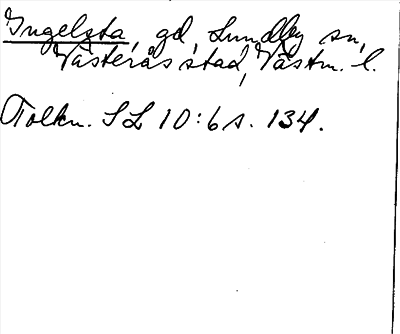 Ingelsta, gd, Lundby sn,
Västerås stad, Västm. l.
Tolkn. SL 10:6 s. 134.